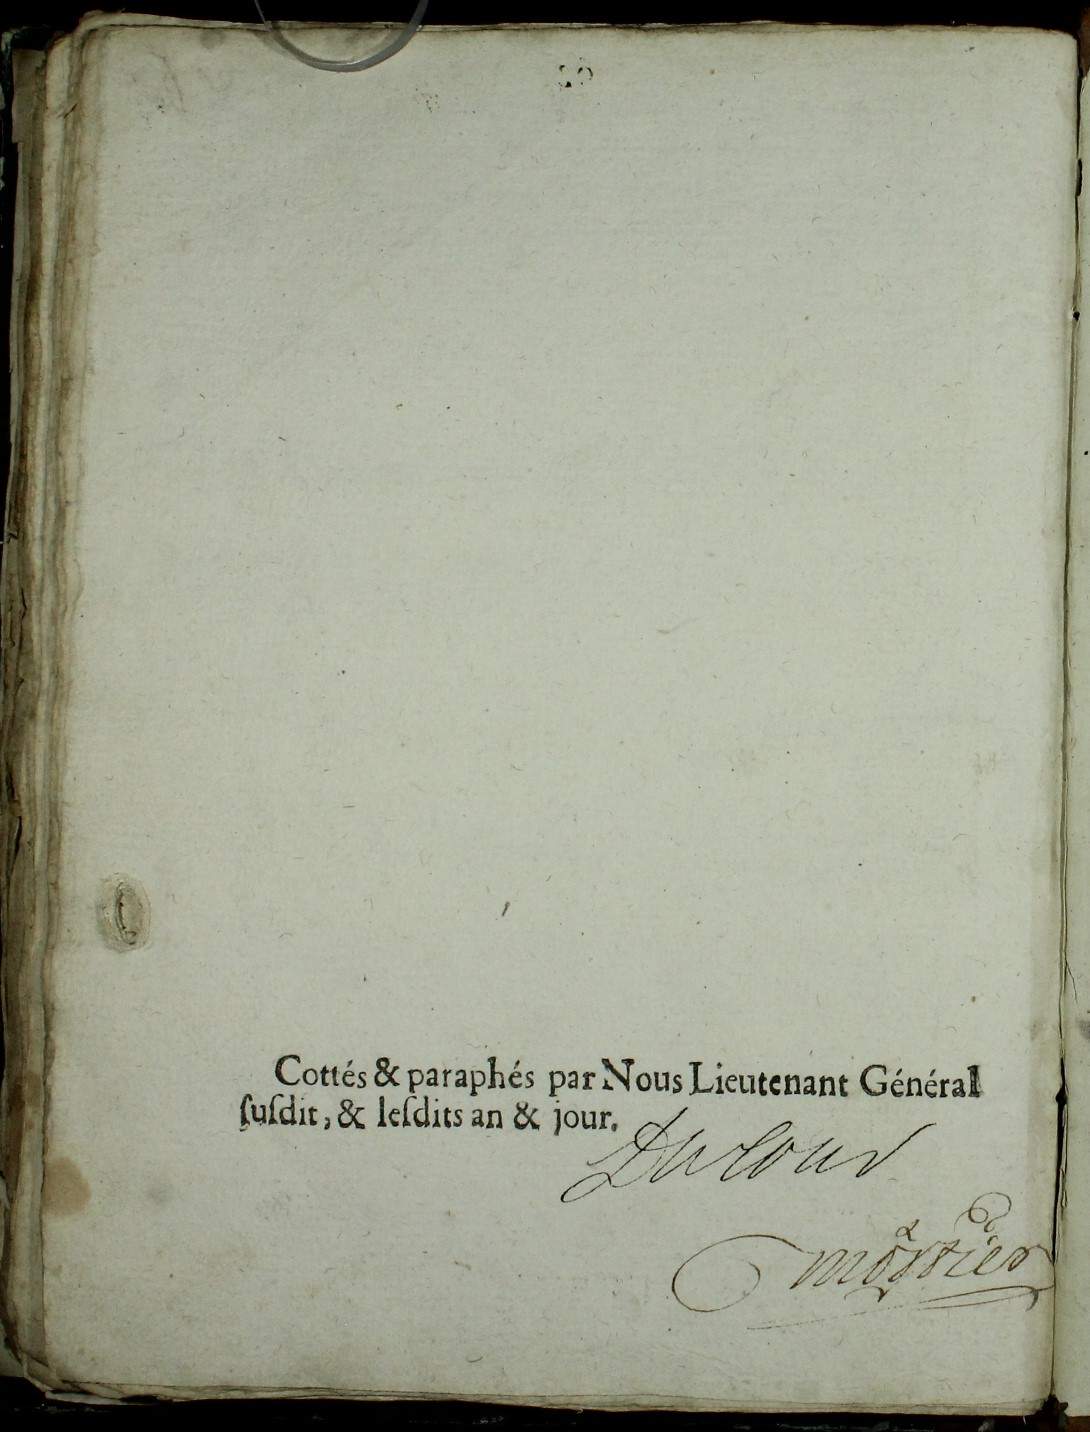 Cottés & paraphés par Nous Lieutenant Général
ſuſdit, & leſdits an & jour.
Ducour
mortier